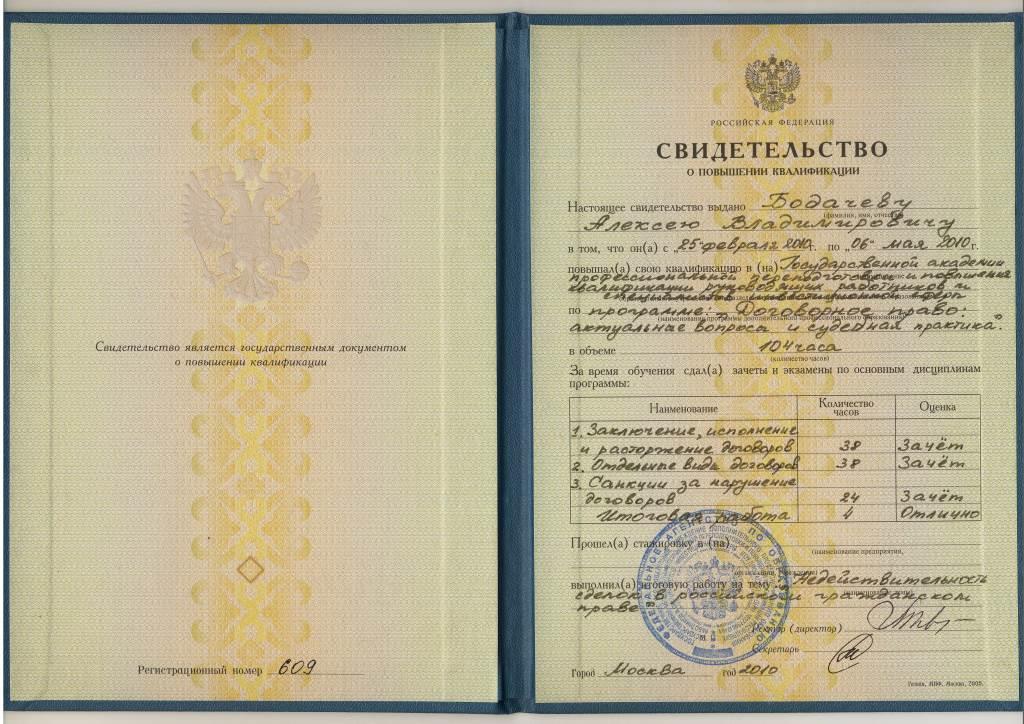 Свидетельство является государственным документом
о повышении квалификации
Регистрационный номер 609
РОССИЙСКАЯ ФЕДЕРАЦИЯ
СВИДЕТЕЛЬСТВО
О ПОВЫШЕНИИ КВАЛИФИКАЦИИ
Настоящее свидетельство выдано Бодачеву
(фамилия, имя, отчество)
Алексею Владимировичу
в том, что он(а) с „25" февраля 2010г. по „06" мая 2010г.
повышал(а) свою квалификацию в (на) Государственной академии
профессиональной переподготовки и повышения
квалификации руководящих работников и
специалистов инвестиционной сферы
по программе: „Договорное право:
актуальные вопросы и судебная практика".
в объеме 104 часа
(количество часов)
За время обучения сдал(а) зачеты и экзамены по основным дисциплинам
программы:
Наименование Количество часов Оценка
1. Заключение, исполнение
и расторжение договоров 38 Зачёт
2. Отдельные виды договоров 38 Зачёт
3. Санкции за нарушение
договоров 24 Зачёт
Итоговая работа 4 Отлично
Прошел(а) стажировку в (на)
(наименование предприятия,
выполнил(а) итоговую работу на тему Недействительность
сделок в российском гражданском
праве
ФЕДЕРАЛЬНОЕ АГЕНТСТВО ПО ОБРАЗОВАНИЮ
Ректор (директор)
Секретарь
Город Москва год 2010
Гознак, МПФ, Москва, 2005.